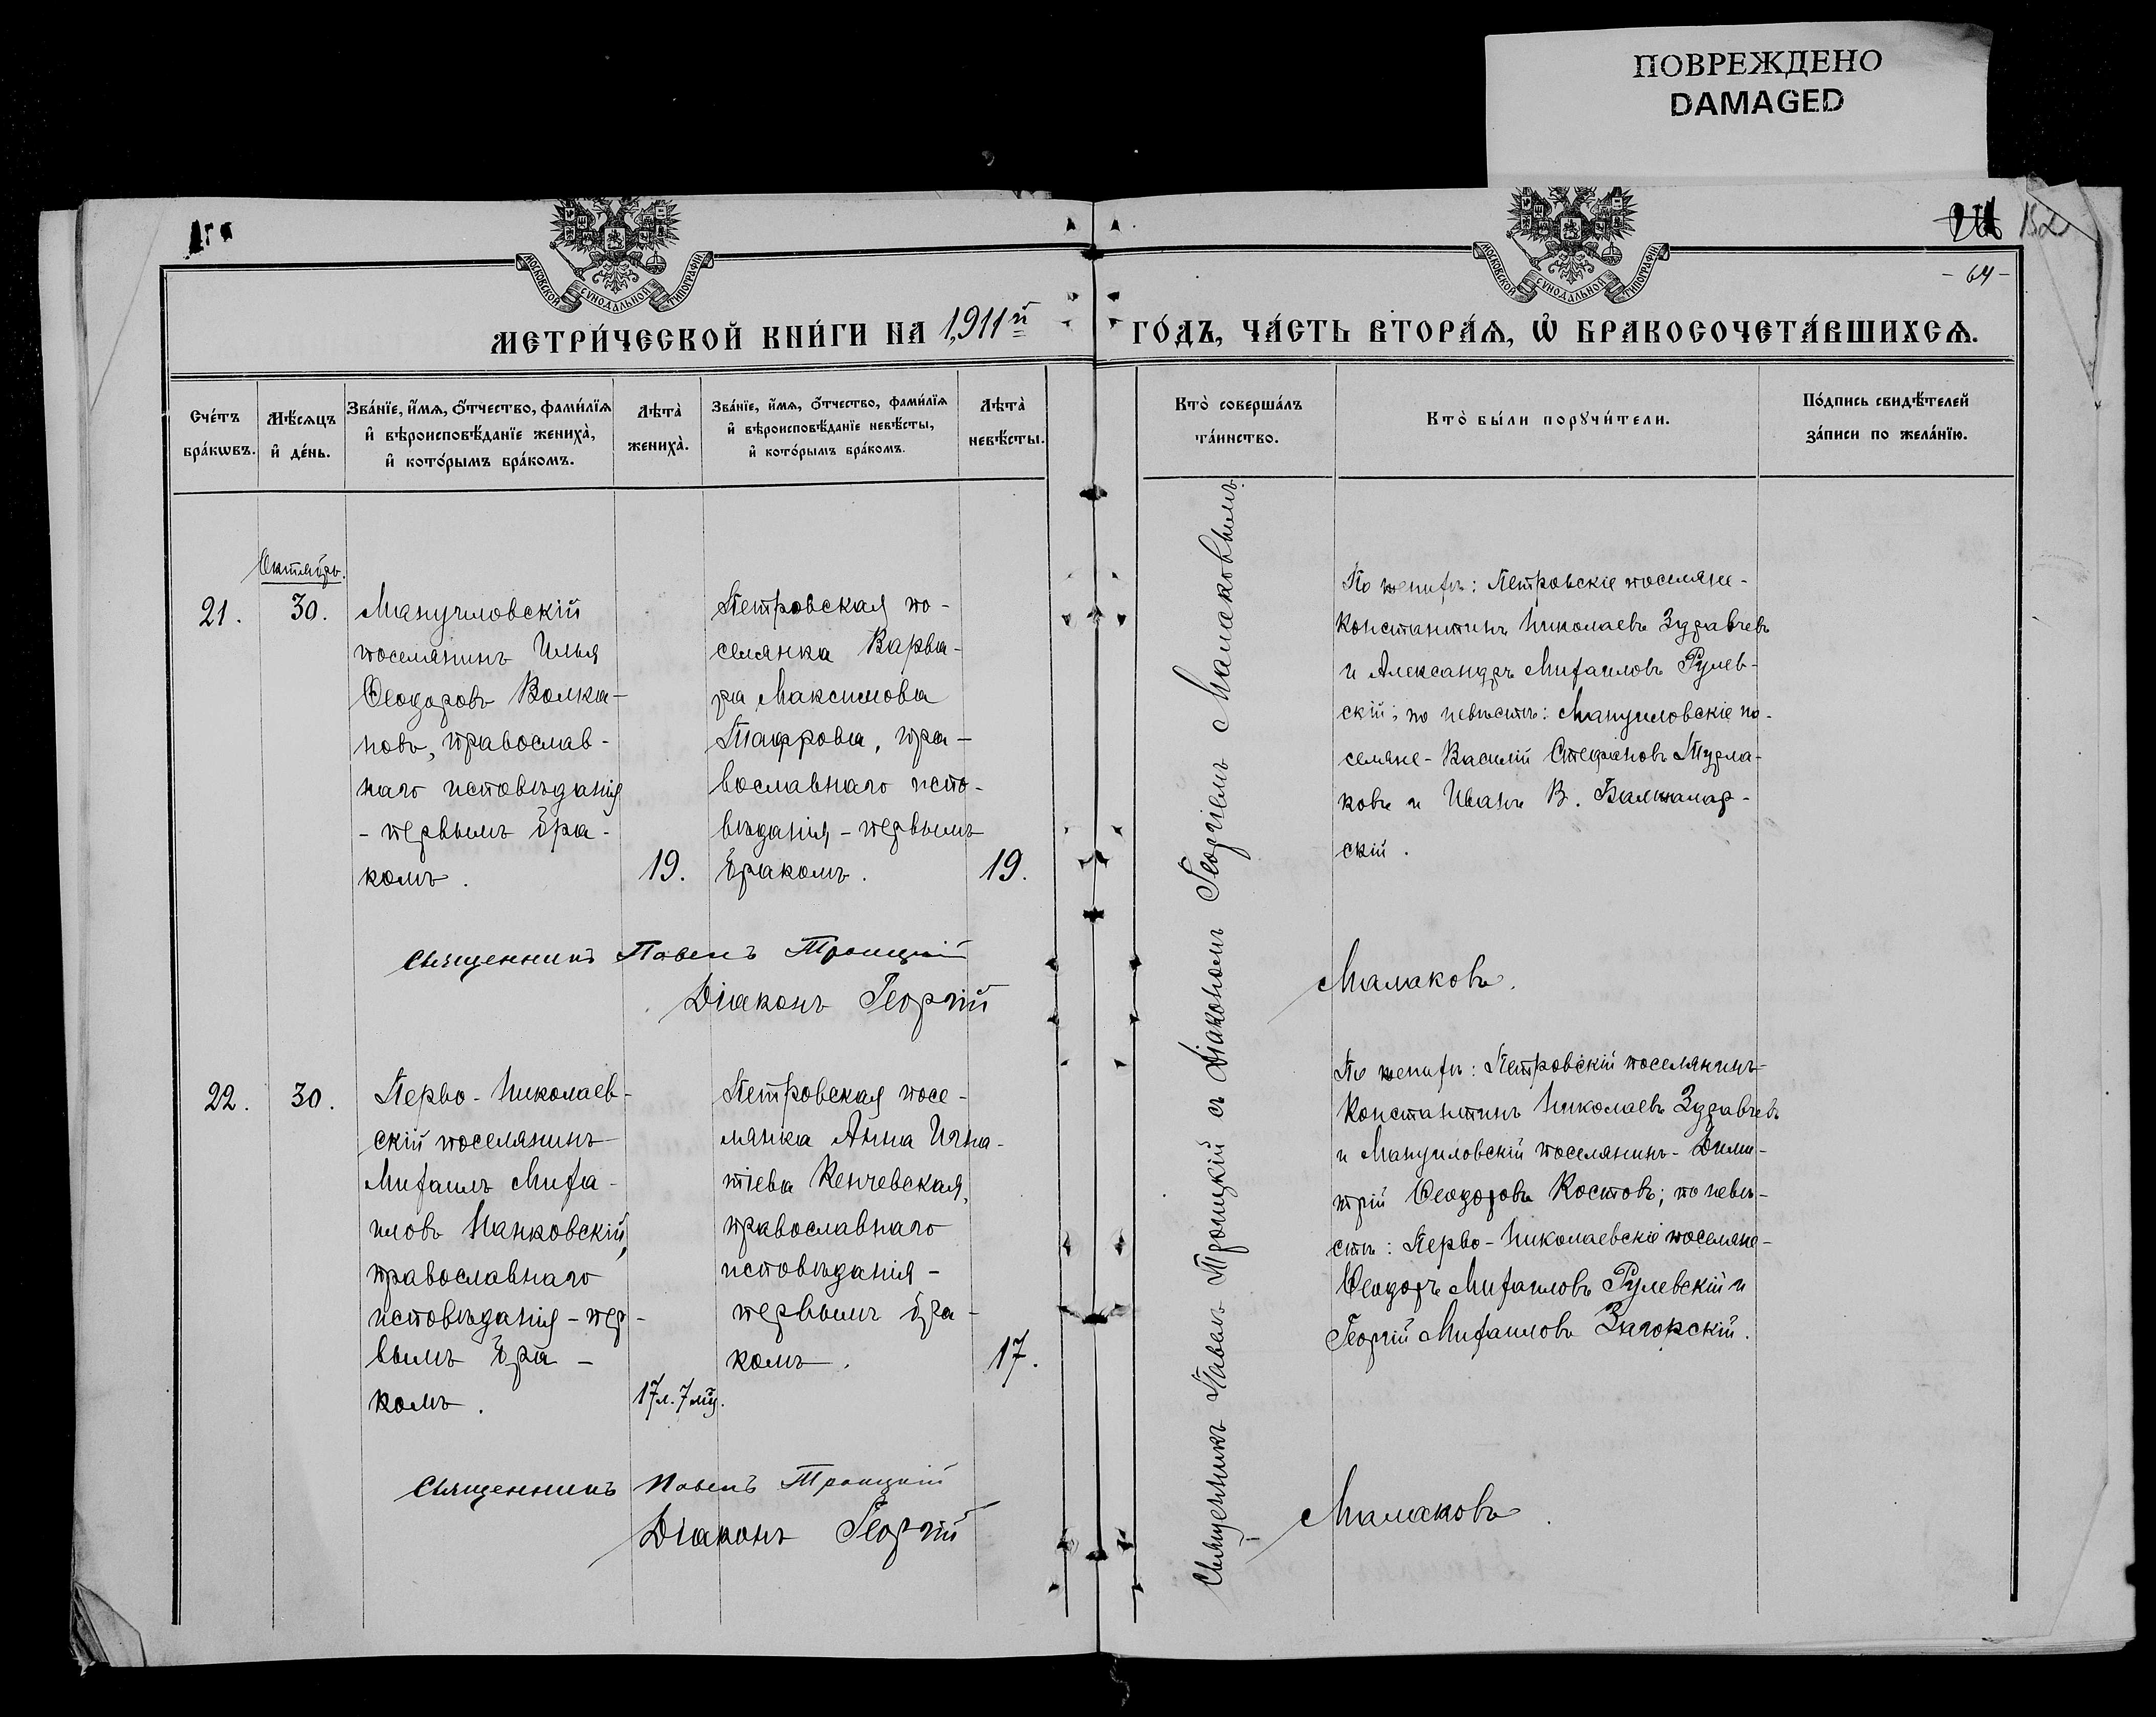 ПОВРЕЖДЕНО
DAMAGED
152
- 64 -
МОСКОВСКОЙ СѴНОДАЛЬНОЙ ТИПОГРАФІИ
МОСКОВСКОЙ СѴНОДАЛЬНОЙ ТИПОГРАФІИ
МЕТРИ́ЧЕСКОЙ КНИ́ГИ НА 1911й
ГО́ДЪ, ЧА́СТЬ ВТОРА́Ѧ, Ѡ҆ БРАКОСОЧЕТА́ВШИХСѦ.
Сче́тъ
бра́кѡвъ.
Мѣ́сѧцъ
и҆ де́нь.
Зва́нїе, и҆́мѧ, ѻ҆́тчество, фами́лїѧ
и҆ вѣроисповѣ́данїе жениха̀,
и҆ кото́рымъ бра́комъ.
Лѣ́та̀
жениха̀.
Зва́нїе, и҆́мѧ, ѻ҆́тчество, фами́лїѧ
и҆ вѣроисповѣ́данїе невѣ́сты,
и҆ кото́рымъ бра́комъ.
Лѣ́та̀
невѣ́сты.
Кто̀ соверша́лъ
та́инство.
Кто̀ бы́ли порꙋчи́тели.
По́дпись свидѣ́телей
за́писи по жела́нїю.
Октябрь.
21.
30.
Мануиловскій
поселянинъ Илья
Ѳеодоровъ Волка-
новъ, православ-
наго исповѣданія
- первымъ бра-
комъ.
19.
Петровская по-
селянка Варва-
ра Максимова
Тафрова, пра-
вославнаго испо-
вѣданія - первымъ
бракомъ.
19.
По женихѣ: Петровскіе поселяне-
Константинъ Николаевъ Здравчевъ
и Александръ Михаиловъ Рулев-
скій; по невѣстѣ: Мануиловскіе по-
селяне - Василій Стефановъ Турла-
ковъ и Иванъ В. Балжалар-
скій.
Священникъ Павелъ Троицкій
Діаконъ Георгій
Малаковъ.
22.
30.
Перво-Николаев-
скій поселянинъ
Михаилъ Миха-
иловъ Панковскій,
православнаго
исповѣданія - пер-
вымъ бра-
комъ.
17 л. 7 мц.
Петровская посе-
лянка Анна Игна-
тіева Кенчевская,
православнаго
исповѣданія -
первымъ бра-
комъ.
17.
По женихѣ: Петровскій поселянинъ
Константинъ Николаевъ Здравчевъ
и Мануиловскій поселянинъ - Дими-
трій Ѳеодоровъ Костовъ; по невѣ-
стѣ: Перво-Николаевскіе поселяне-
Ѳеодоръ Михаиловъ Рулевскій и
Георгій Михаиловъ Загорскій.
Священникъ Павелъ Троицкій
Діаконъ Георгій
Малаковъ
Священникъ Павелъ Троицкій съ Діакономъ Георгіемъ Малаковымъ